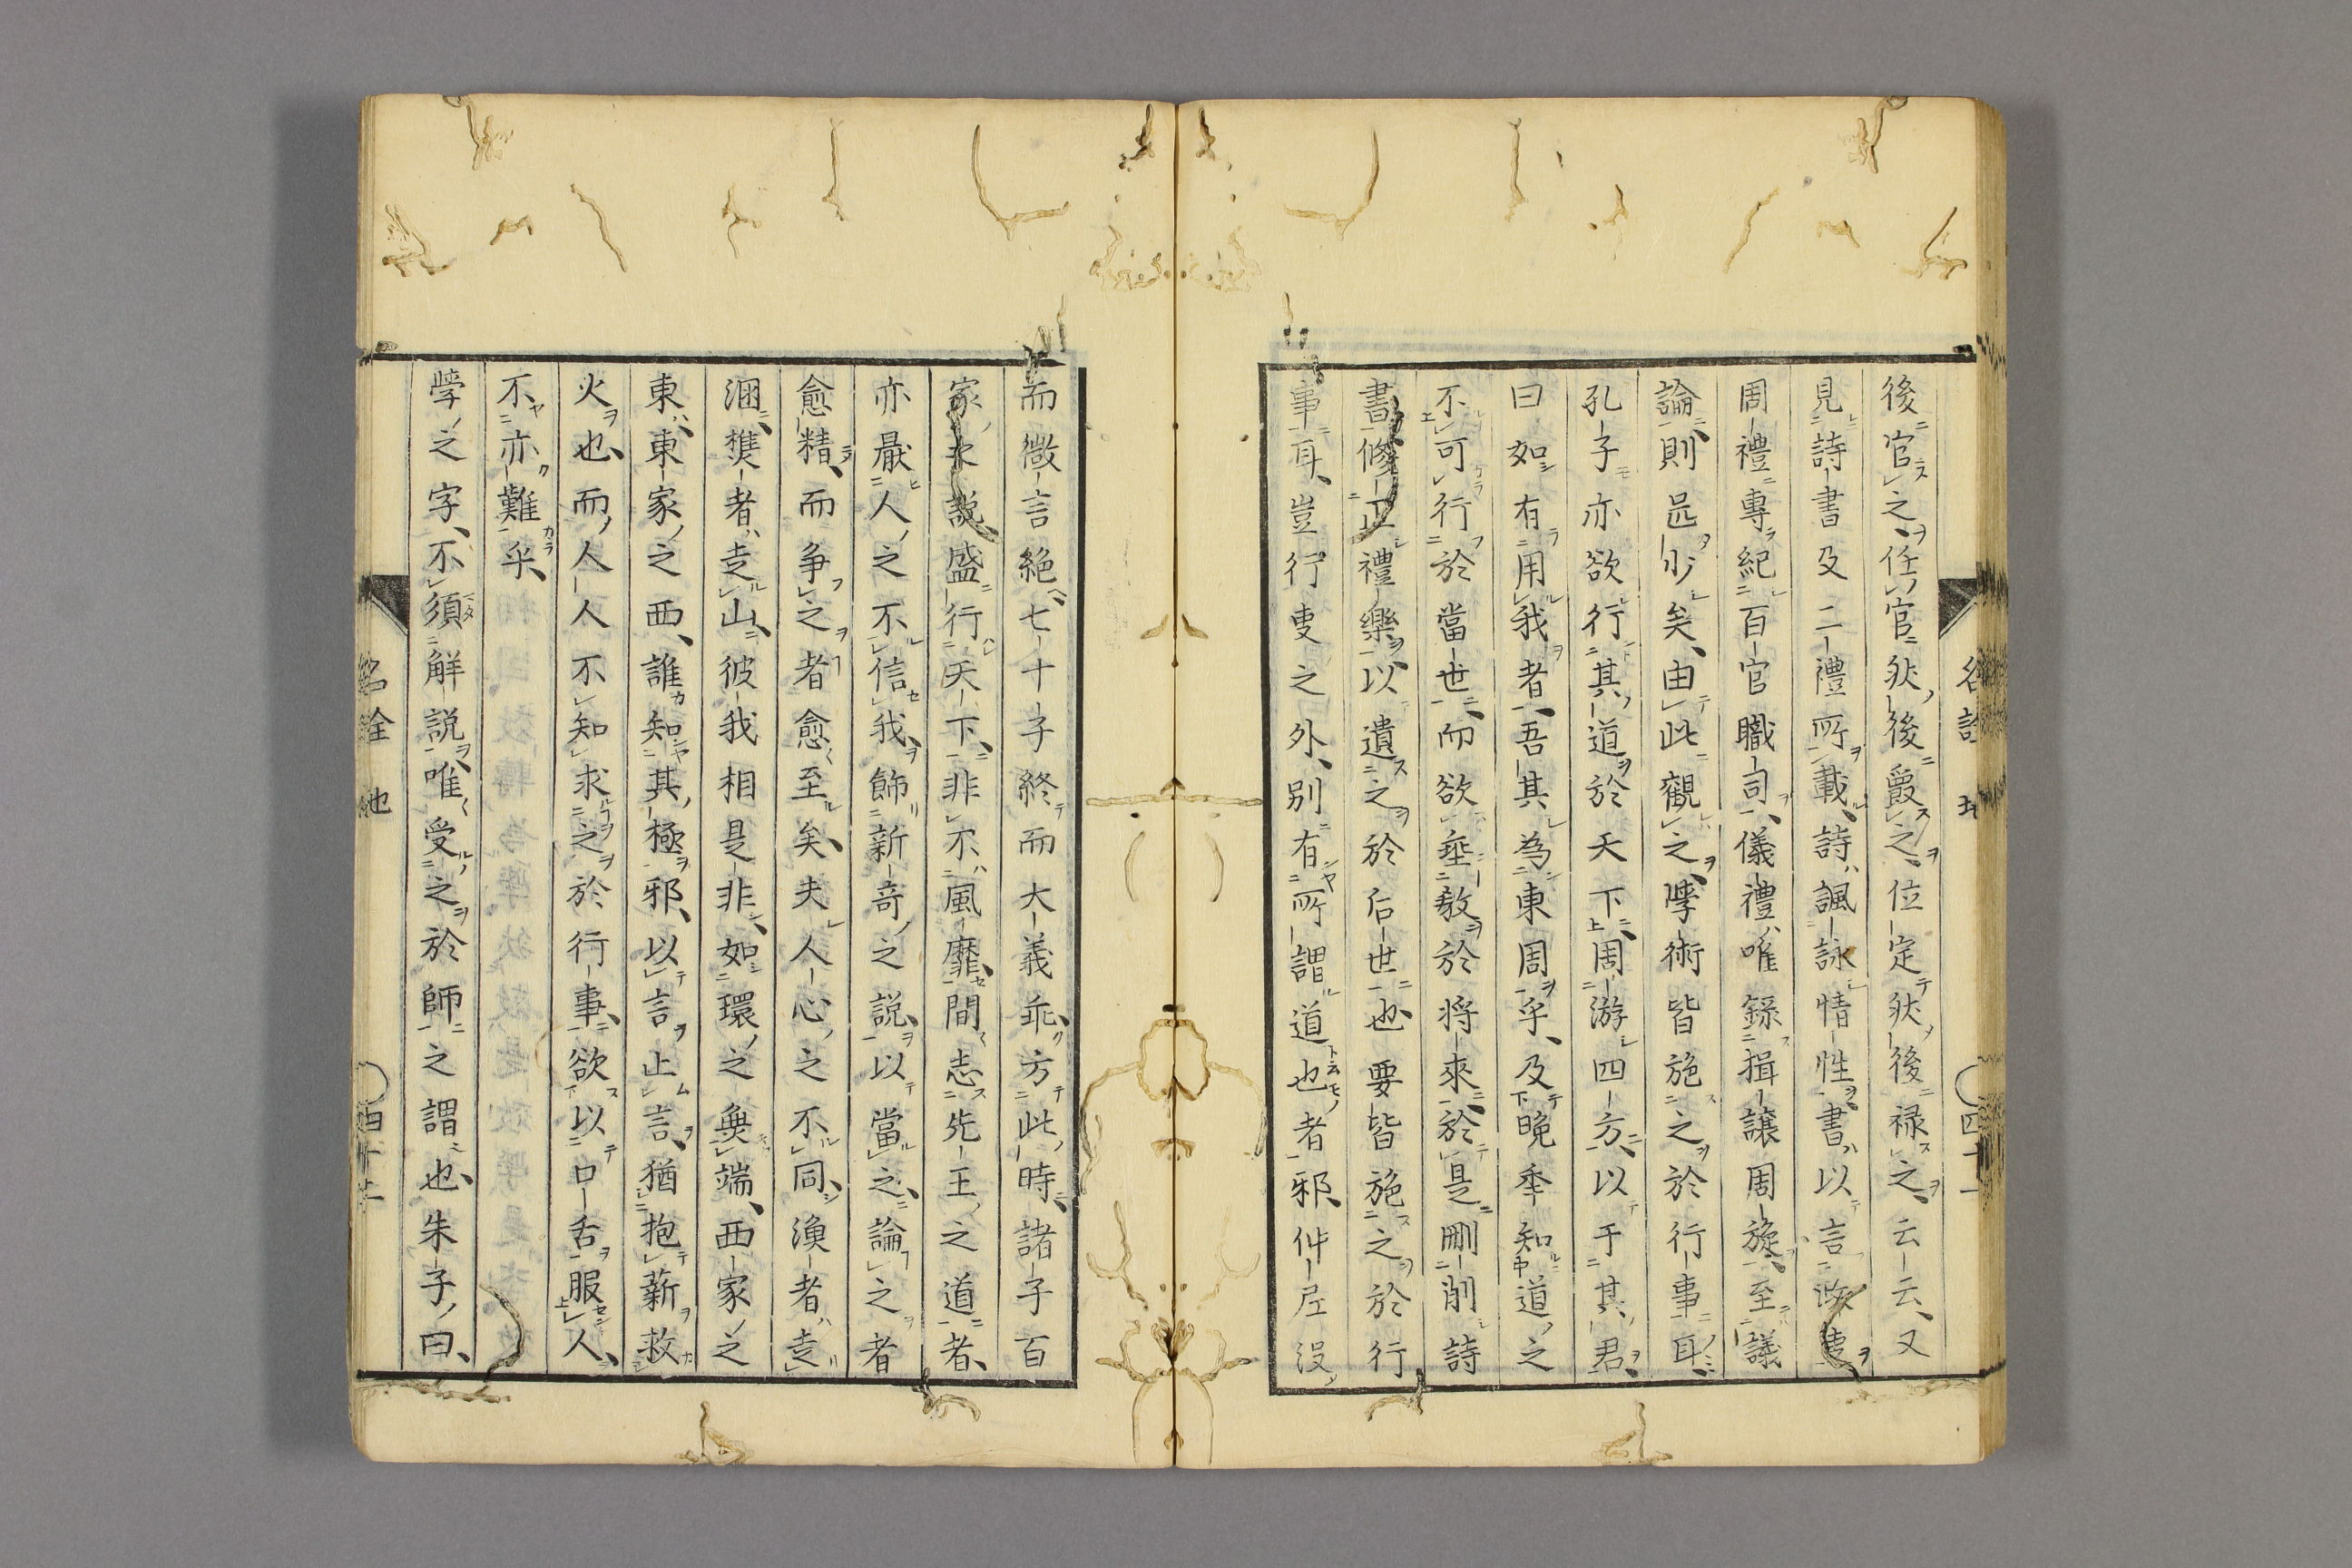 後官之任官然後爵之位定然後禄之云云又
見詩書及二禮所載詩諷詠情性書以言政事
周禮專紀百官職司儀禮唯錄揖讓周旋至議
論則尟少矣由此觀之學術皆施之於行事耳
孔子亦欲行其道於天下周游四方以于其君
曰如有用我者吾其為東周乎及晚年知道之
不可行於當世而欲垂教於將來於是刪削詩
書修正禮樂以遺之於后世也要皆施之於行
事耳豈行事之外別有所謂道也者邪仲尼沒
而微言絕七十子終而大義乖方此時諸子百
家之說盛行天下非不風靡間志先王之道者
亦厭人之不信我飾新奇之說以當之論之者
愈精而爭之者愈至矣夫人心之不同漁者走
淵樵者走山彼我相是非如環之無端西家之
東東家之西誰知其極邪以言止言猶抱薪救
火也而人人不知求之於行事欲以口舌服人
不亦難乎
學之字不須解說唯受之於師之謂也朱子曰
名詮 地
四十一
名詮 地